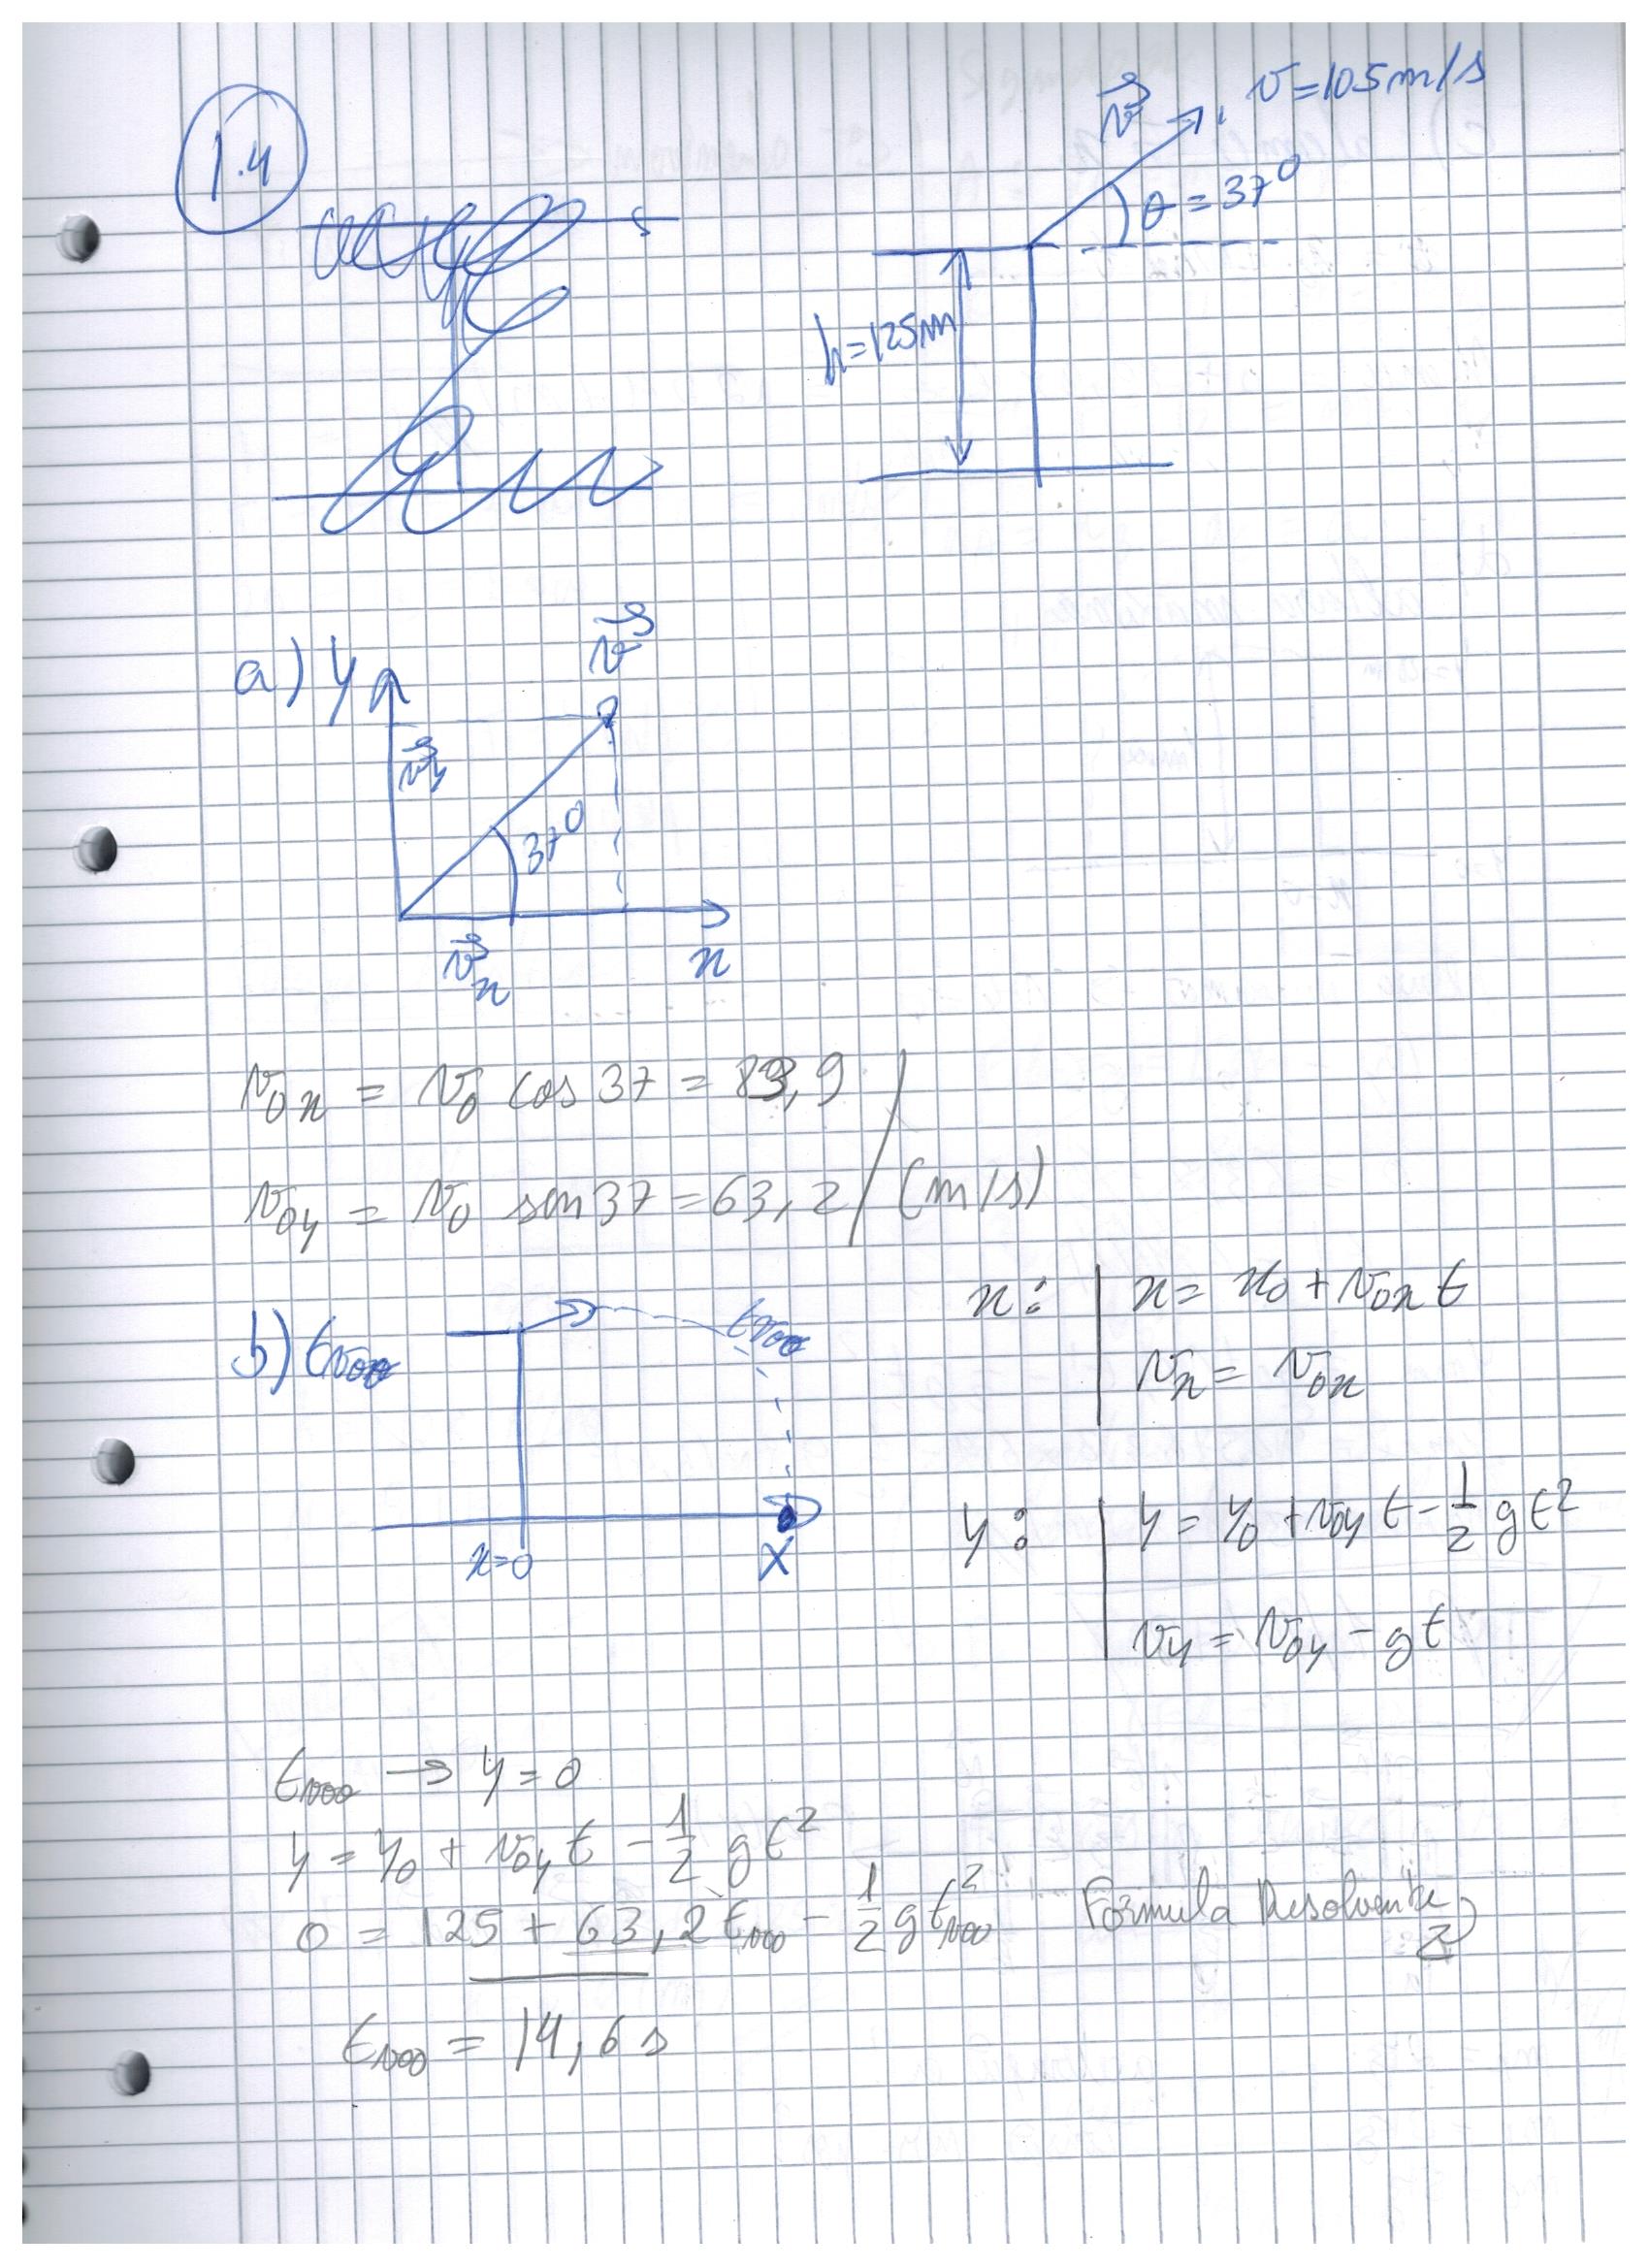 1.4
v⃗ v=105m/s
θ=37°
h=125m
a) y
v⃗
v⃗y
37°
v⃗x
x
v₀x = v₀ cos 37 = 83,9
v₀y = v₀ sen 37 = 63,2 (m/s)
x: x = x₀ + v₀x t
vx = v₀x
b) tvoo
tvoo
x=0
X
y: y = y₀ + v₀y t - 1/2 g t²
vy = v₀y - gt
tvoo → y = 0
y = y₀ + v₀y t - 1/2 g t²
0 = 125 + 63,2 tvoo - 1/2 g tvoo² Fórmula Resolvente
tvoo = 14,6 s